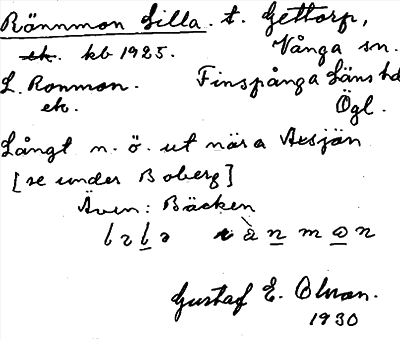 Rännmon Lilla. t. Gettorp,
ek. kb 1925. Vånga sn.
L. Ronmon. Finspånga Läns hd
ek. Ögl.
Långt n. ö. ut nära Axsjön
[se under Boberg]
Även: Bäcken
Gustaf E. Olsson.
1930